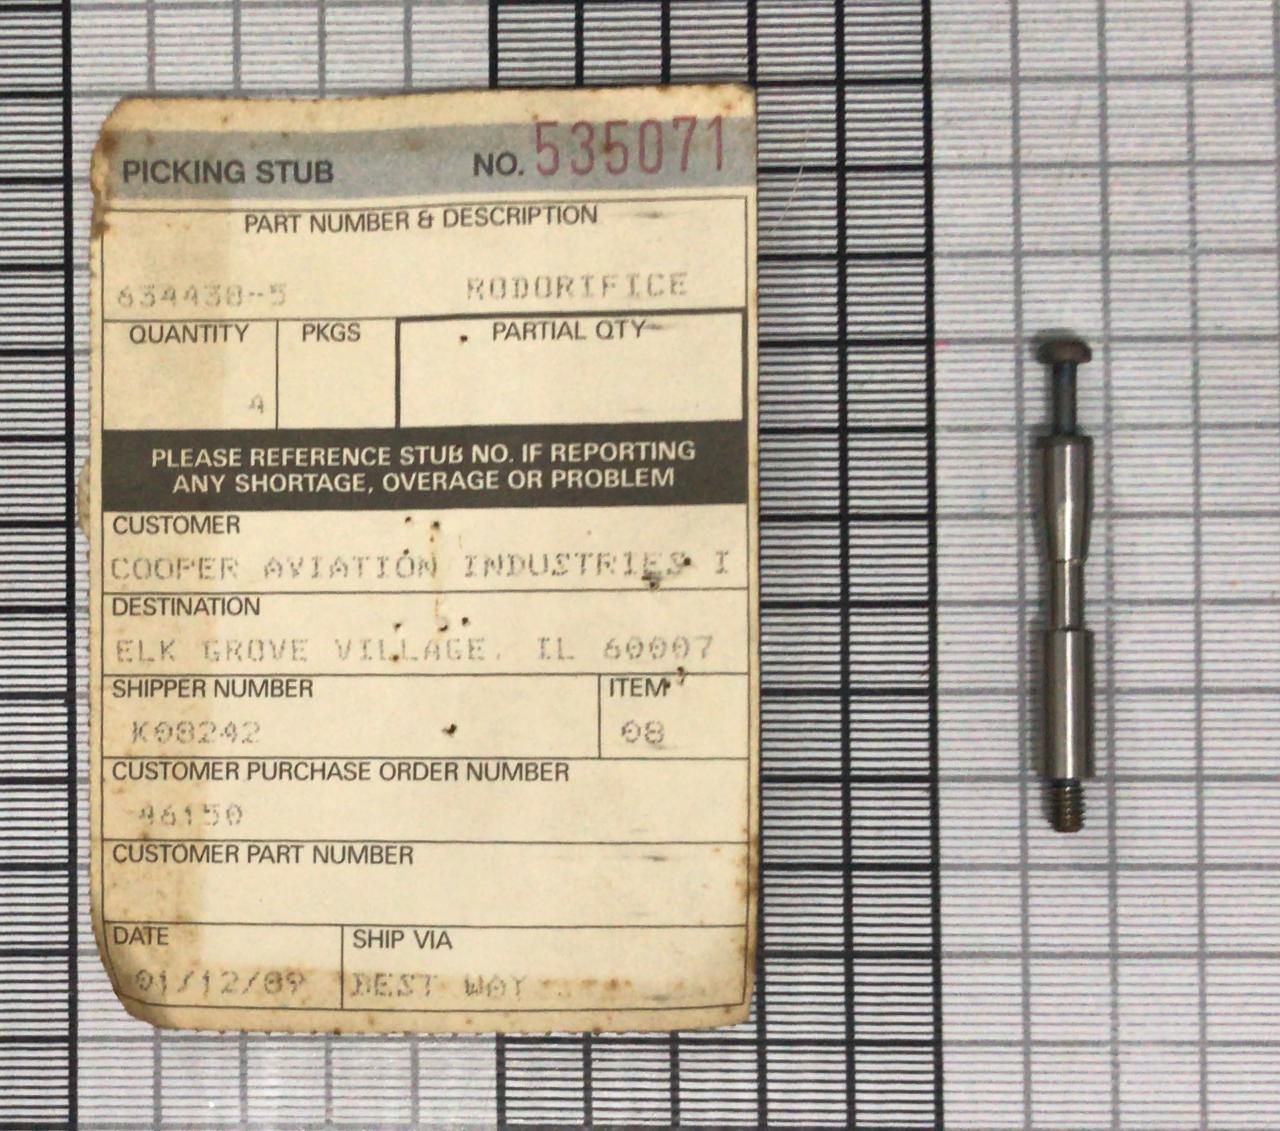 PICKING STUB NO. 535071
PART NUMBER & DESCRIPTION
634438-5 RODORIFICE
QUANTITY PKGS PARTIAL QTY
4
PLEASE REFERENCE STUB NO. IF REPORTING
ANY SHORTAGE, OVERAGE OR PROBLEM
CUSTOMER
COOPER AVIATION INDUSTRIES I
DESTINATION
ELK GROVE VILLAGE, IL 60007
SHIPPER NUMBER ITEM
K08242 08
CUSTOMER PURCHASE ORDER NUMBER
46150
CUSTOMER PART NUMBER
DATE SHIP VIA
01/12/89 BEST WAY